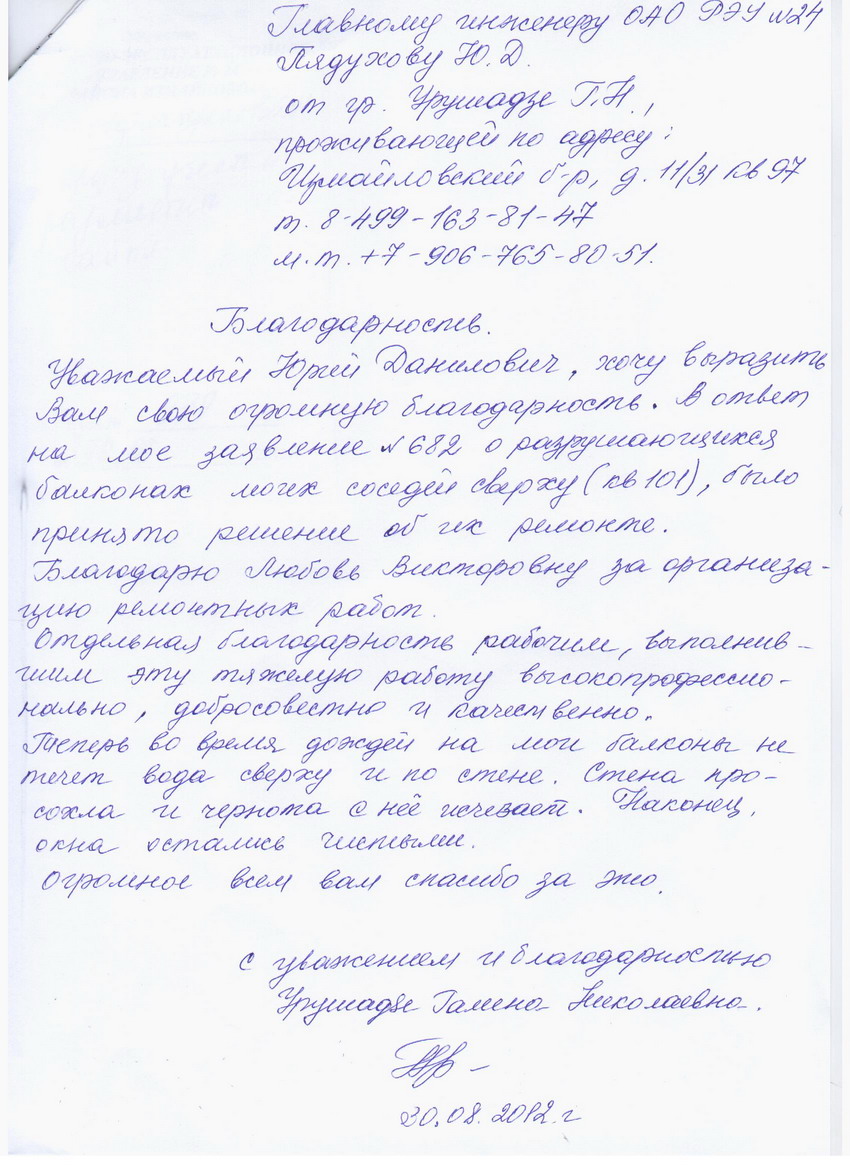 Главному инженеру ОАО РЭУ №24
Пядухову Ю.Д.
от гр. Урушадзе Г.Н.,
проживающей по адресу:
Измайловский б-р, д. 11/31 кв 97
т. 8-499-163-81-47
м.т. +7-906-765-80-51.
Благодарность.
Уважаемый Юрий Данилович, хочу выразить
Вам свою огромную благодарность. В ответ
на мое заявление №682 о разрушающихся
балконах моих соседей сверху (кв 101), было
принято решение об их ремонте.
Благодарю Любовь Викторовну за организа-
цию ремонтных работ.
Отдельная благодарность рабочим, выполнив-
шим эту тяжелую работу высокопрофессио-
нально, добросовестно и качественно.
Теперь во время дождей на мои балконы не
течет вода сверху и по стене. Стена про-
сохла и чернота с неё исчезает. Наконец,
окна остались чистыми.
Огромное всем вам спасибо за это.
С уважением и благодарностью
Урушадзе Галина Николаевна.
30.08.2012.г